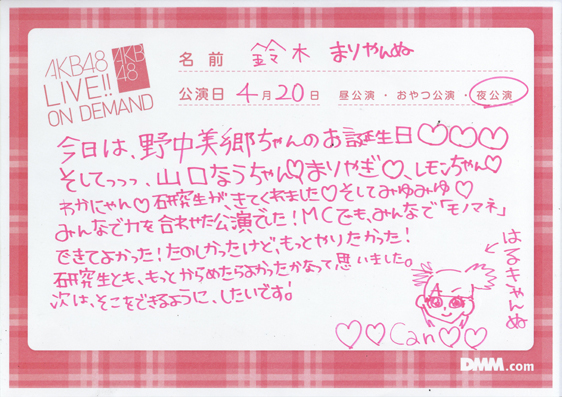 AKB48
LIVE!!
ON DEMAND
AKB
48
名前 鈴木 まりやんぬ
公演日 4月20日 昼公演・おやつ公演・夜公演
今日は、野中美郷ちゃんのお誕生日♡♡♡
そしてっっっ、山口なうちゃん♡まりやぎ♡、レモンちゃん♡
わかにゃん♡研究生が、きてくれました♡そしてみゆみゆ♡
みんなで力を合わせた公演でした!MCでも、みんなで「モノマネ」
できてよかった!たのしかったけど、もっとやりたかった!
研究生とも、もっとからめたらよかったかなって思いました。
次は、そこをできるように、したいです!
はるきゃんぬ
♡♡Can♡♡
DMM.com